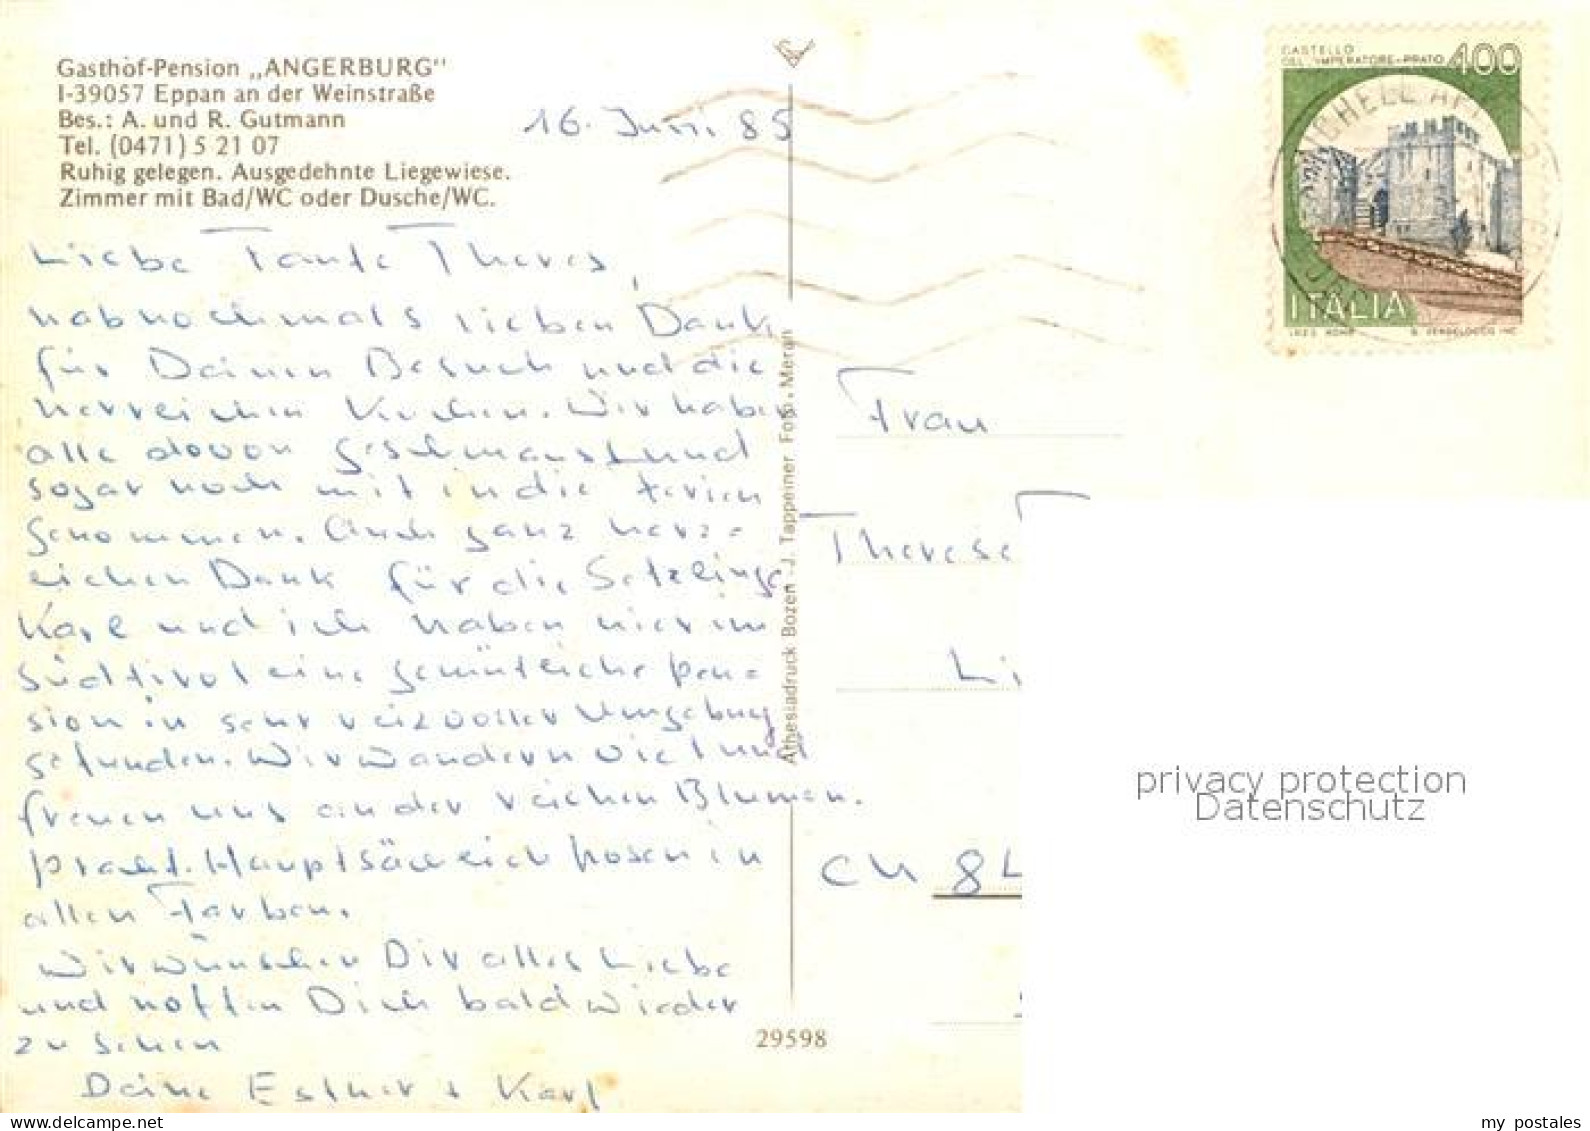 Gasthof-Pension „ANGERBURG"
I-39057 Eppan an der Weinstraße
Bes.: A. und R. Gutmann
Tel. (0471) 5 21 07
Ruhig gelegen. Ausgedehnte Liegewiese.
Zimmer mit Bad/WC oder Dusche/WC.
16. Juni 85
Liebe Tante Theres,
hab nochmals lieben Dank
für Deinen Besuch und die
herrlichen Kuchen. Wir haben
alle davon geschmaust und
sogar noch mit in die Ferien
genommen. Auch ganz herz=
lichen Dank für die Setzlinge.
Karl und ich haben hier im
Südtirol eine gemütliche Pen=
sion in sehr reizvoller Umgebung
gefunden. Wir wandern viel und
freuen uns an der reichen Blumen.
pracht. Hauptsächlich Rosen in
allen Farben.
Wir wünschen Dir alles Liebe
und hoffen Dich bald wieder
zu sehen
Deine Esther + Karl
Athesiadruck Bozen - J. Tappeiner Foto, Meran
29598
CASTELLO
DELL'IMPERATORE-PRATO 400
ITALIA
I.P.Z.S. ROMA
Frau
Therese
Li
CH 84
privacy protection
Datenschutz
my postales